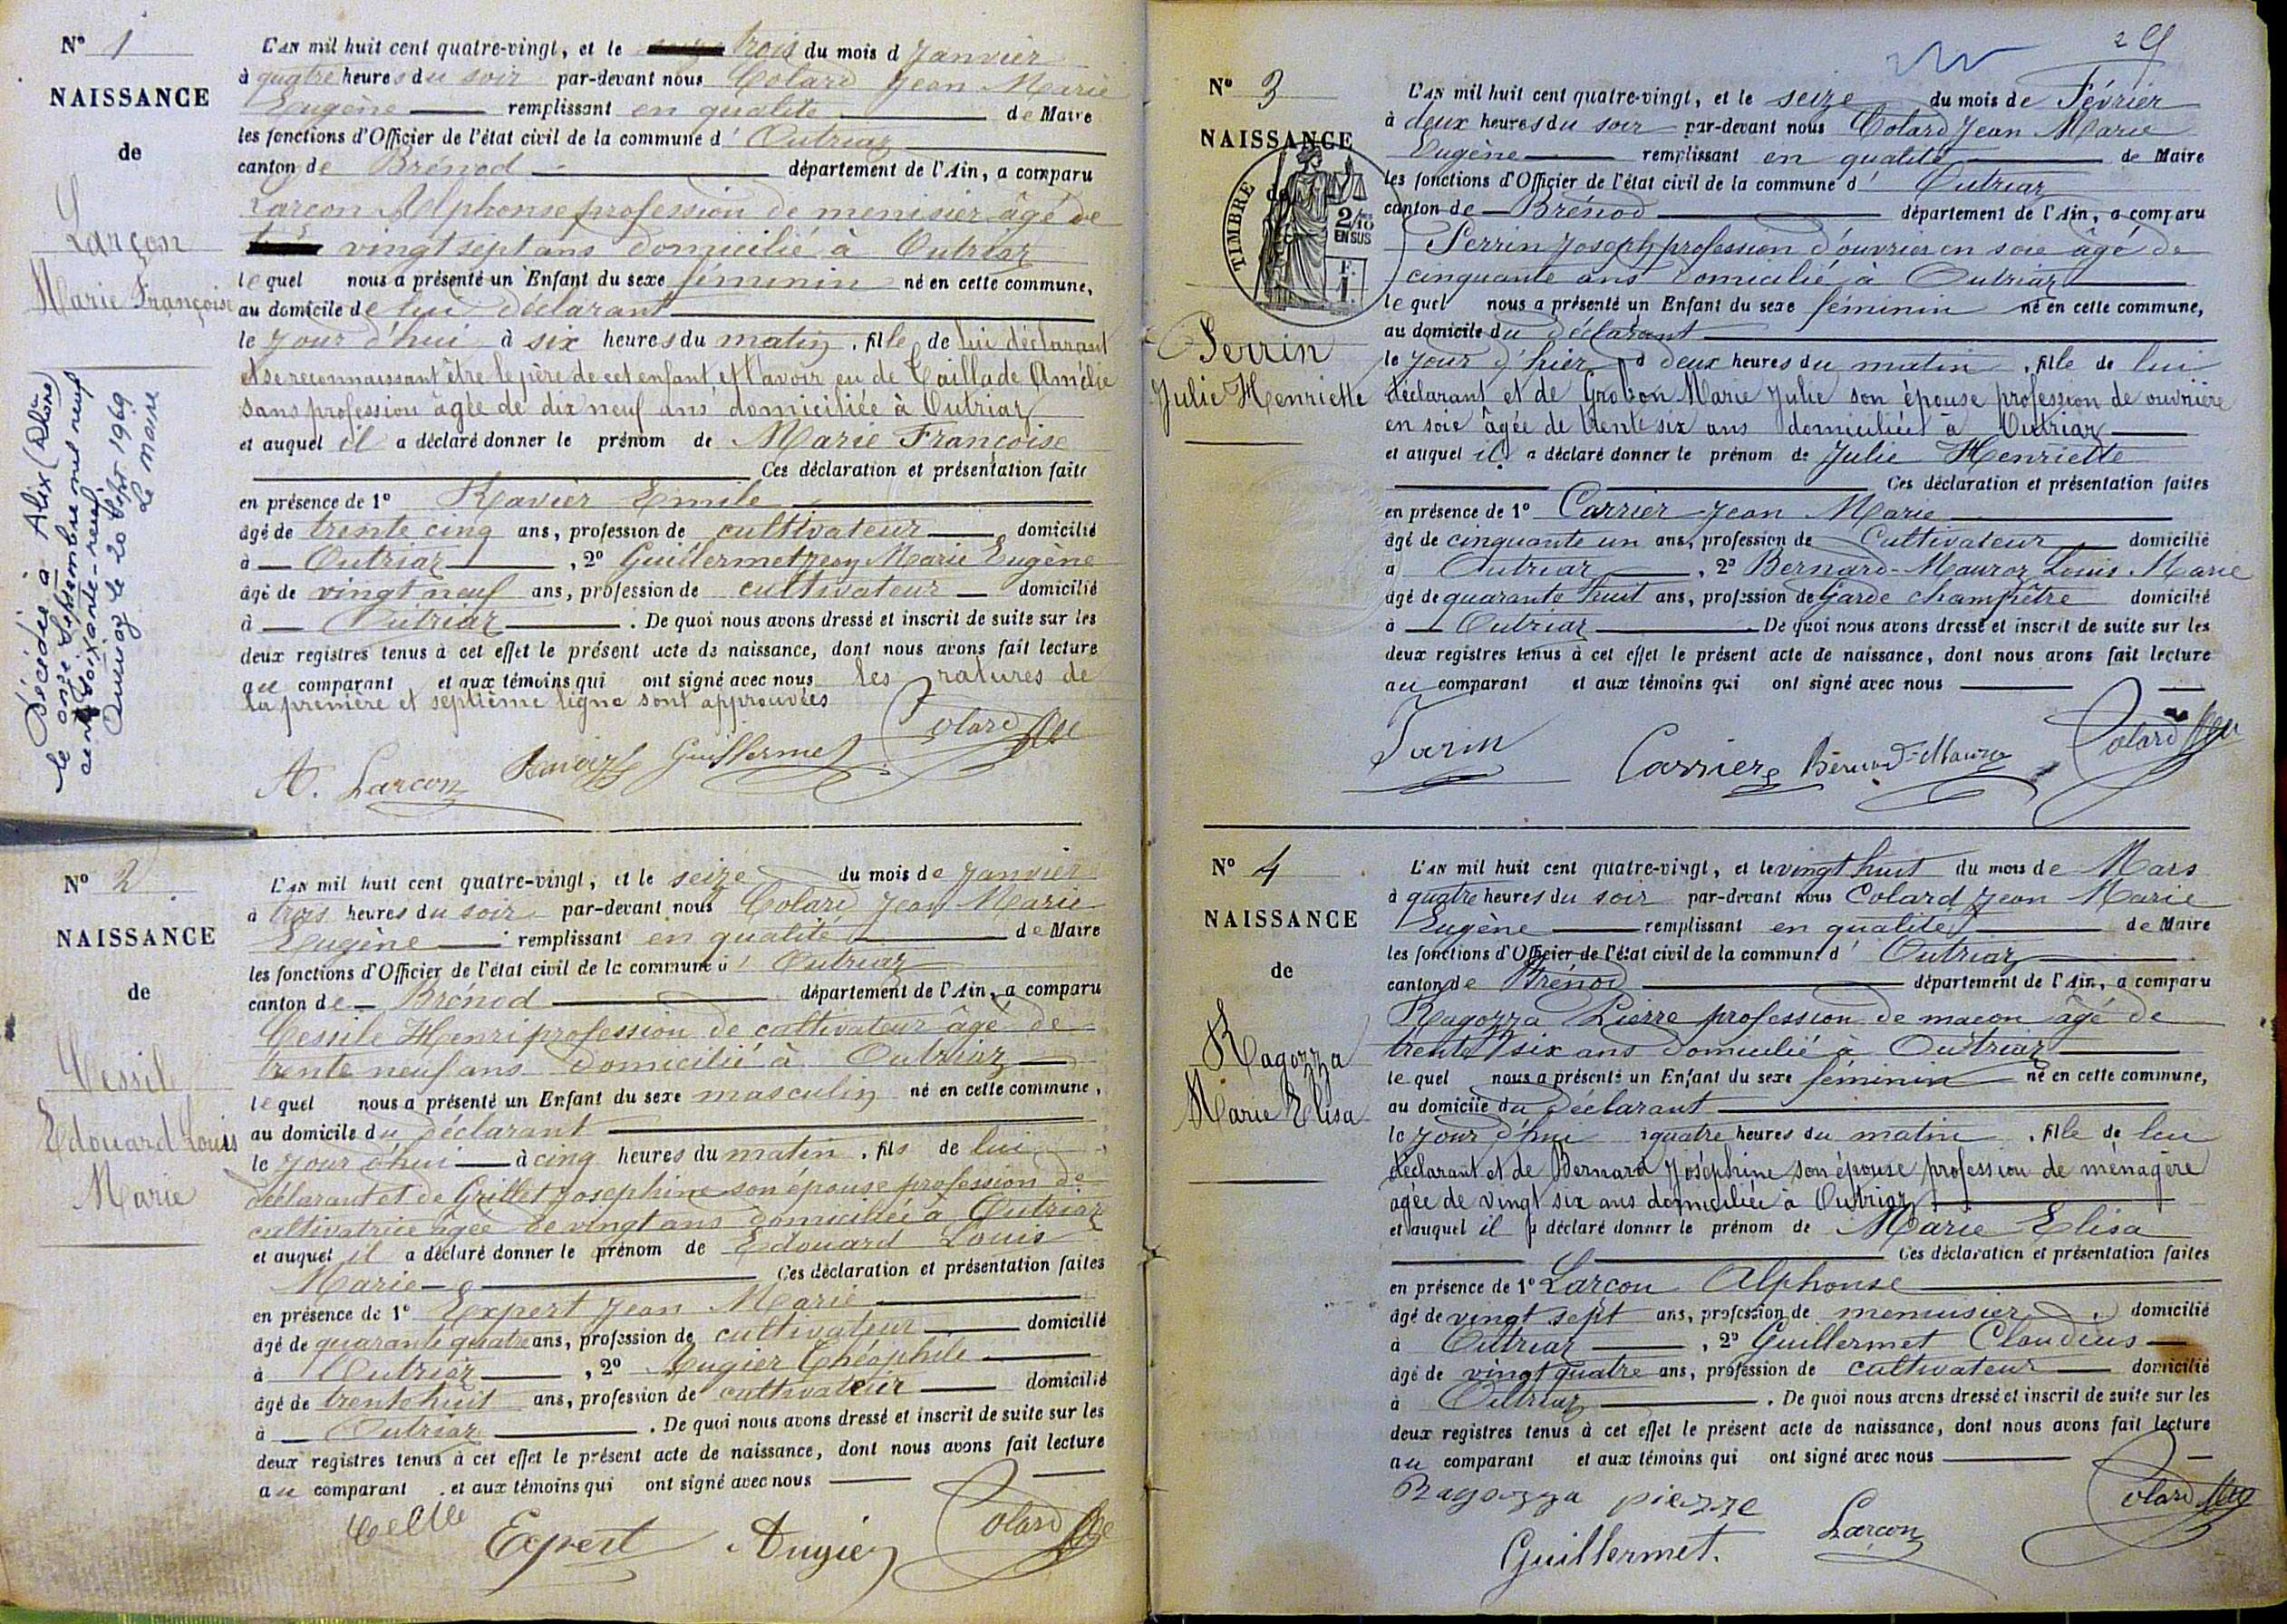 N° 1
NAISSANCE
de
Larçon
Marie Françoise
Décédée à Alix (Rhône)
le onze septembre mil neuf
cent soixante-neuf
Outriaz le 20 Sept 1969
Le Maire
L'AN mil huit cent quatre-vingt, et le trois du mois d Janvier
à quatre heures du soir par-devant nous Colard Jean Marie
Eugène remplissant en qualité de Maire
les fonctions d'Officier de l'état civil de la commune d' Outriaz
canton de Brénod département de l'Ain, a comparu
Larçon Alphonse profession de menisier âgé de
vingt sept ans domicilié à Outriaz
lequel nous a présenté un Enfant du sexe féminin né en cette commune,
au domicile de lui déclarant
le jour d'hui à six heures du matin, fille de lui déclarant
et se reconnaissant être le père de cet enfant et l'avoir eu de Taillade Amélie
sans profession âgée de dix neuf ans domiciliée à Outriaz
et auquel il a déclaré donner le prénom de Marie Françoise
Ces déclaration et présentation faites
en présence de 1° Ravier Emile
âgé de trente cinq ans, profession de cultivateur domicilié
à Outriaz, 2° Guillermet Jean Marie Eugène
âgé de vingt neuf ans, profession de cultivateur domicilié
à Outriaz. De quoi nous avons dressé et inscrit de suite sur les
deux registres tenus à cet effet le présent acte de naissance, dont nous avons fait lecture
au comparant et aux témoins qui ont signé avec nous les ratures de
la première et septième ligne sont approuvées
A. Larçon Ravier Guillermet Colard
N° 2
NAISSANCE
de
Cessile
Edouard Louis
Marie
L'AN mil huit cent quatre-vingt, et le seize du mois de Janvier
à trois heures du soir par-devant nous Colard Jean Marie
Eugène remplissant en qualité de Maire
les fonctions d'Officier de l'état civil de la commune d' Outriaz
canton de Brénod département de l'Ain, a comparu
Cessile Henri profession de cultivateur âgé de
trente neuf ans domicilié à Outriaz
lequel nous a présenté un Enfant du sexe masculin né en cette commune,
au domicile du déclarant
le jour d'hui à cinq heures du matin, fils de lui
déclarant et de Grillet Josephine son épouse profession de
cultivatrice âgée de vingt ans domiciliée à Outriaz
et auquel il a déclaré donner le prénom de Edouard Louis
Marie Ces déclaration et présentation faites
en présence de 1° Expert Jean Marie
âgé de quarante quatre ans, profession de cultivateur domicilié
à Outriaz, 2° Augier Théophile
âgé de trente huit ans, profession de cultivateur domicilié
à Outriaz. De quoi nous avons dressé et inscrit de suite sur les
deux registres tenus à cet effet le présent acte de naissance, dont nous avons fait lecture
au comparant et aux témoins qui ont signé avec nous
Expert Augier Colard
29
N° 3
NAISSANCE
de
TIMBRE
2/10
EN SUS
F.
1.
Perrin
Julie Henriette
L'AN mil huit cent quatre-vingt, et le seize du mois de Février
à deux heures du soir par-devant nous Colard Jean Marie
Eugène remplissant en qualité de Maire
les fonctions d'Officier de l'état civil de la commune d' Outriaz
canton de Brénod département de l'Ain, a comparu
Perrin Joseph profession d'ouvrier en soie âgé de
cinquante ans domicilié à Outriaz
lequel nous a présenté un Enfant du sexe féminin né en cette commune,
au domicile du déclarant
le jour d'hier à deux heures du matin, fille de lui
déclarant et de Grobon Marie Julie son épouse profession de ouvrière
en soie âgée de trente six ans domiciliée à Outriaz
et auquel il a déclaré donner le prénom de Julie Henriette
Ces déclaration et présentation faites
en présence de 1° Carrier Jean Marie
âgé de cinquante un ans, profession de Cultivateur domicilié
à Outriaz, 2° Bernard-Mauroz Louis Marie
âgé de quarante huit ans, profession de Garde champêtre domicilié
à Outriaz. De quoi nous avons dressé et inscrit de suite sur les
deux registres tenus à cet effet le présent acte de naissance, dont nous avons fait lecture
au comparant et aux témoins qui ont signé avec nous
Carrier Bernard-Mauroz Colard
N° 4
NAISSANCE
de
Ragozza
Marie Elisa
L'AN mil huit cent quatre-vingt, et le vingt huit du mois de Mars
à quatre heures du soir par-devant nous Colard Jean Marie
Eugène remplissant en qualité de Maire
les fonctions d'Officier de l'état civil de la commune d' Outriaz
canton de Brénod département de l'Ain, a comparu
Ragozza Pierre profession de maçon âgé de
trente six ans domicilié à Outriaz
lequel nous a présenté un Enfant du sexe féminin né en cette commune,
au domicile du déclarant
le jour d'hui à quatre heures du matin, fille de lui
déclarant et de Bernard Joséphine son épouse profession de ménagère
agée de vingt six ans domiciliée à Outriaz
et auquel il a déclaré donner le prénom de Marie Elisa
Ces déclaration et présentation faites
en présence de 1° Larçon Alphonse
âgé de vingt sept ans, profession de menuisier domicilié
à Outriaz, 2° Guillermet Claudius
âgé de vingt quatre ans, profession de cultivateur domicilié
à Outriaz. De quoi nous avons dressé et inscrit de suite sur les
deux registres tenus à cet effet le présent acte de naissance, dont nous avons fait lecture
au comparant et aux témoins qui ont signé avec nous
Ragozza pierre Larçon Colard
Guillermet.